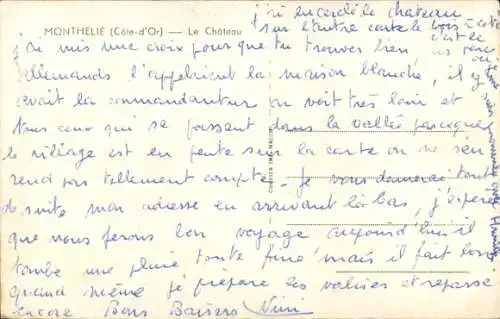 MONTHELIE (Côte-d'Or) — Le Château
j'ai encerclé le chateau
sur l'autre carte le bois à coté
c'est le
j'ai mis une croix pour que tu trouves bien
allemands l'appelaient la maison blanche, il y
avait la commandantur on voit très loin et
tous ceux qui se passent dans la vallée parceque
le village est en pente sur la carte on ne s'en
rend pas tellement compte. Je vous donnerai tout
de suite mon adresse en arrivant là bas, j'espère
que nous ferons bon voyage aujourd'hui il
tombe une pluie toute fine mais il fait bon
quand même je prépare les valises et repasse
encore Bons Baisers Nini